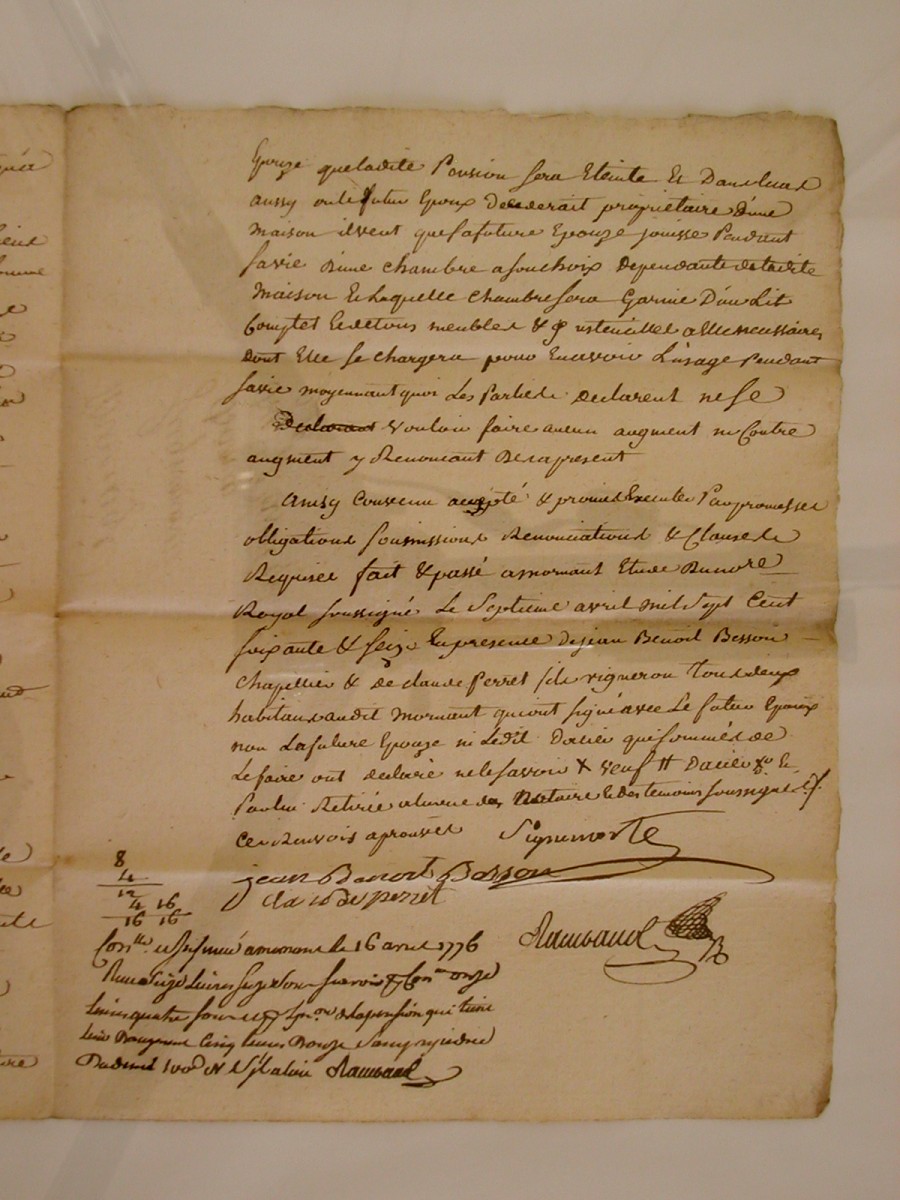 Epouze que ladite Pension sera Eteinte Et Dans le cas
aussy ou le futur Epoux Decederait propriétaire d'une
maison il veut que sa future Epouze jouisse Pendant
sa vie D'une chambre a son choix dependante de ladite
Maison Et laquelle chambre sera Garnie D'un Lit
Complet Et de tous meubles & ustencilles a Elle necessaires
Dont Elle se chargera pour En avoir L'usage Pendant
sa vie moyennant quoi Les Parties declarent ne se
vouloir faire aucun augment ni Contre
augment y Renoncant Des a present
Ainsy Convenu accepté & promis Executer Par promesses
obligations soumissions Renonciations & Clauses
Requises fait & passé a mornant Etude Du nore
Royal soussigné Le Septieme avril mil Sept Cent
soixante & seize En presence De jean Benoit Besson
Chapellier & de claude Perret fils vigneron tous deux
habitans audit Mornant qui ont signé avec Le futur Epoux
non La future Epouze ni Ledit Dacier que sommés de
Le faire ont declaré ne le savoir & veuf Dacier Et
Par lui Retirée a la vue des Notaire Et des temoins soussignés
Ces Renvois aprouvés Signemorte
jean Benoit Besson
claude perret
8
4
12
4 16
16 16
Rambaud
Conlle et Insinué a mornant le 16 avril 1776
Reçu seize Livres seize sous
Livres quatre sous de la pension qui
Livres Cinq Livres Douze sans prejudice
Rambaud